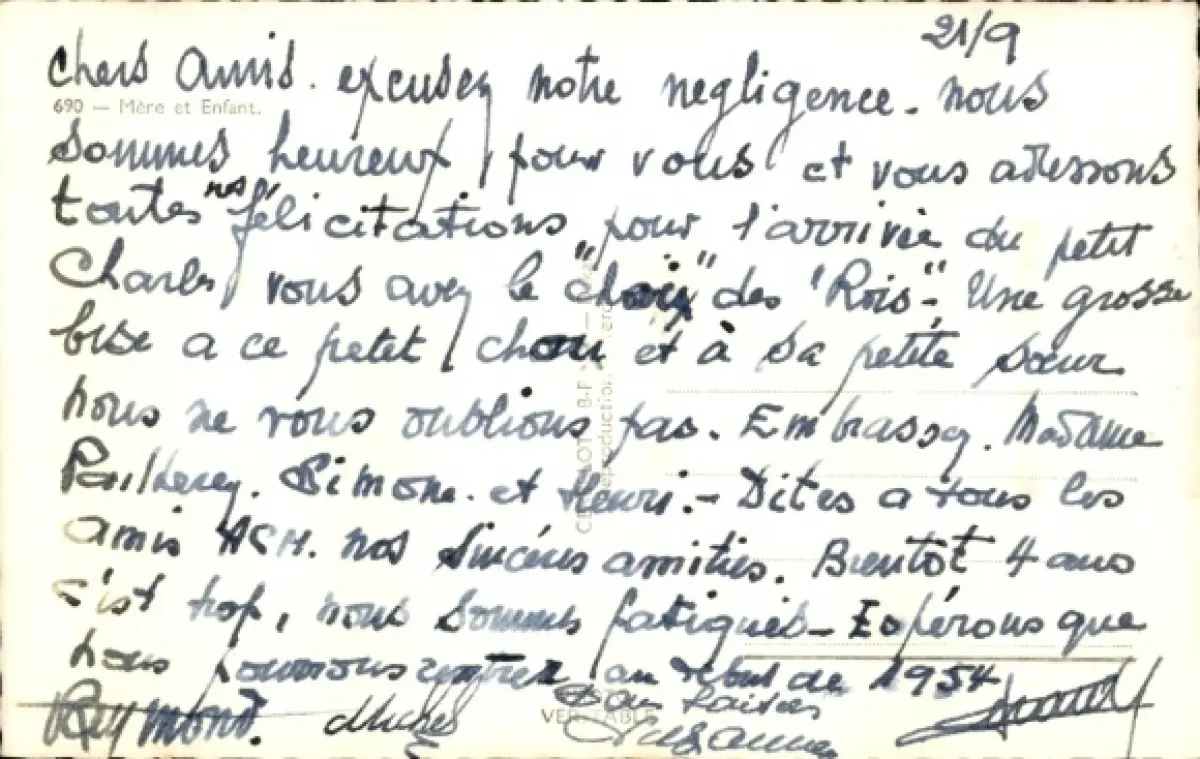 21/9
chers Amis. excusez notre negligence. nous
690 — Mère et Enfant.
sommes heureux pour vous et vous adressons
toutes nos félicitations pour l'arrivée du petit
Charles, vous avez le "choix" des "Rois". Une grosse
bise a ce petit chou et à sa petite sœur
nous ne vous oublions pas. Embrassez. Madame
Simone. et Henri. - Dites a tous les
amis nos sincères amitiés. Bientôt 4 ans
c'est trop, nous sommes fatigués - Espérons que
nous pourrons rentrer au début de 1954
Raymond. Michel
Suzanne